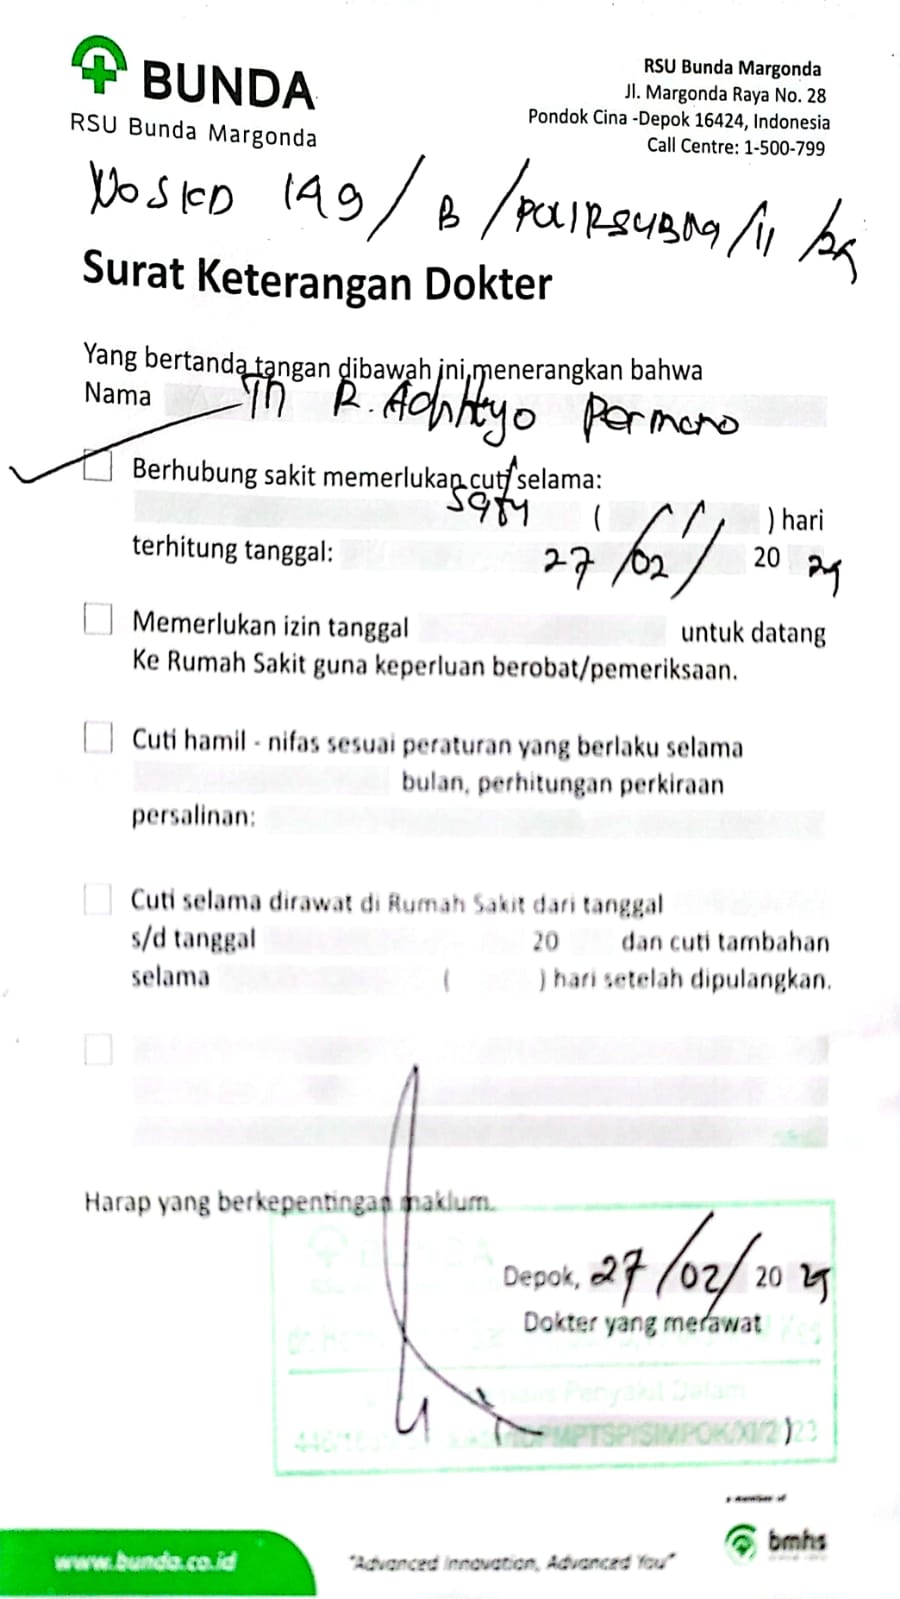 BUNDA
RSU Bunda Margonda
RSU Bunda Margonda
Jl. Margonda Raya No. 28
Pondok Cina -Depok 16424, Indonesia
Call Centre: 1-500-799
No SKD 149 / B /
Surat Keterangan Dokter
Yang bertanda tangan dibawah ini,menerangkan bahwa
Nama Tn R. Adhityo Permono
Berhubung sakit memerlukan cuti selama:
satu ( ) hari
terhitung tanggal: 27/02/ 20 25
Memerlukan izin tanggal untuk datang
Ke Rumah Sakit guna keperluan berobat/pemeriksaan.
Cuti hamil - nifas sesuai peraturan yang berlaku selama
bulan, perhitungan perkiraan
persalinan:
Cuti selama dirawat di Rumah Sakit dari tanggal
s/d tanggal 20 dan cuti tambahan
selama ( ) hari setelah dipulangkan.
Harap yang berkepentingan maklum.
BUNDA
Depok, 27/02/ 20 25
Dokter yang merawat
Penyakit Dalam
a member of
bmhs
www.bunda.co.id
"Advanced Innovation, Advanced You"